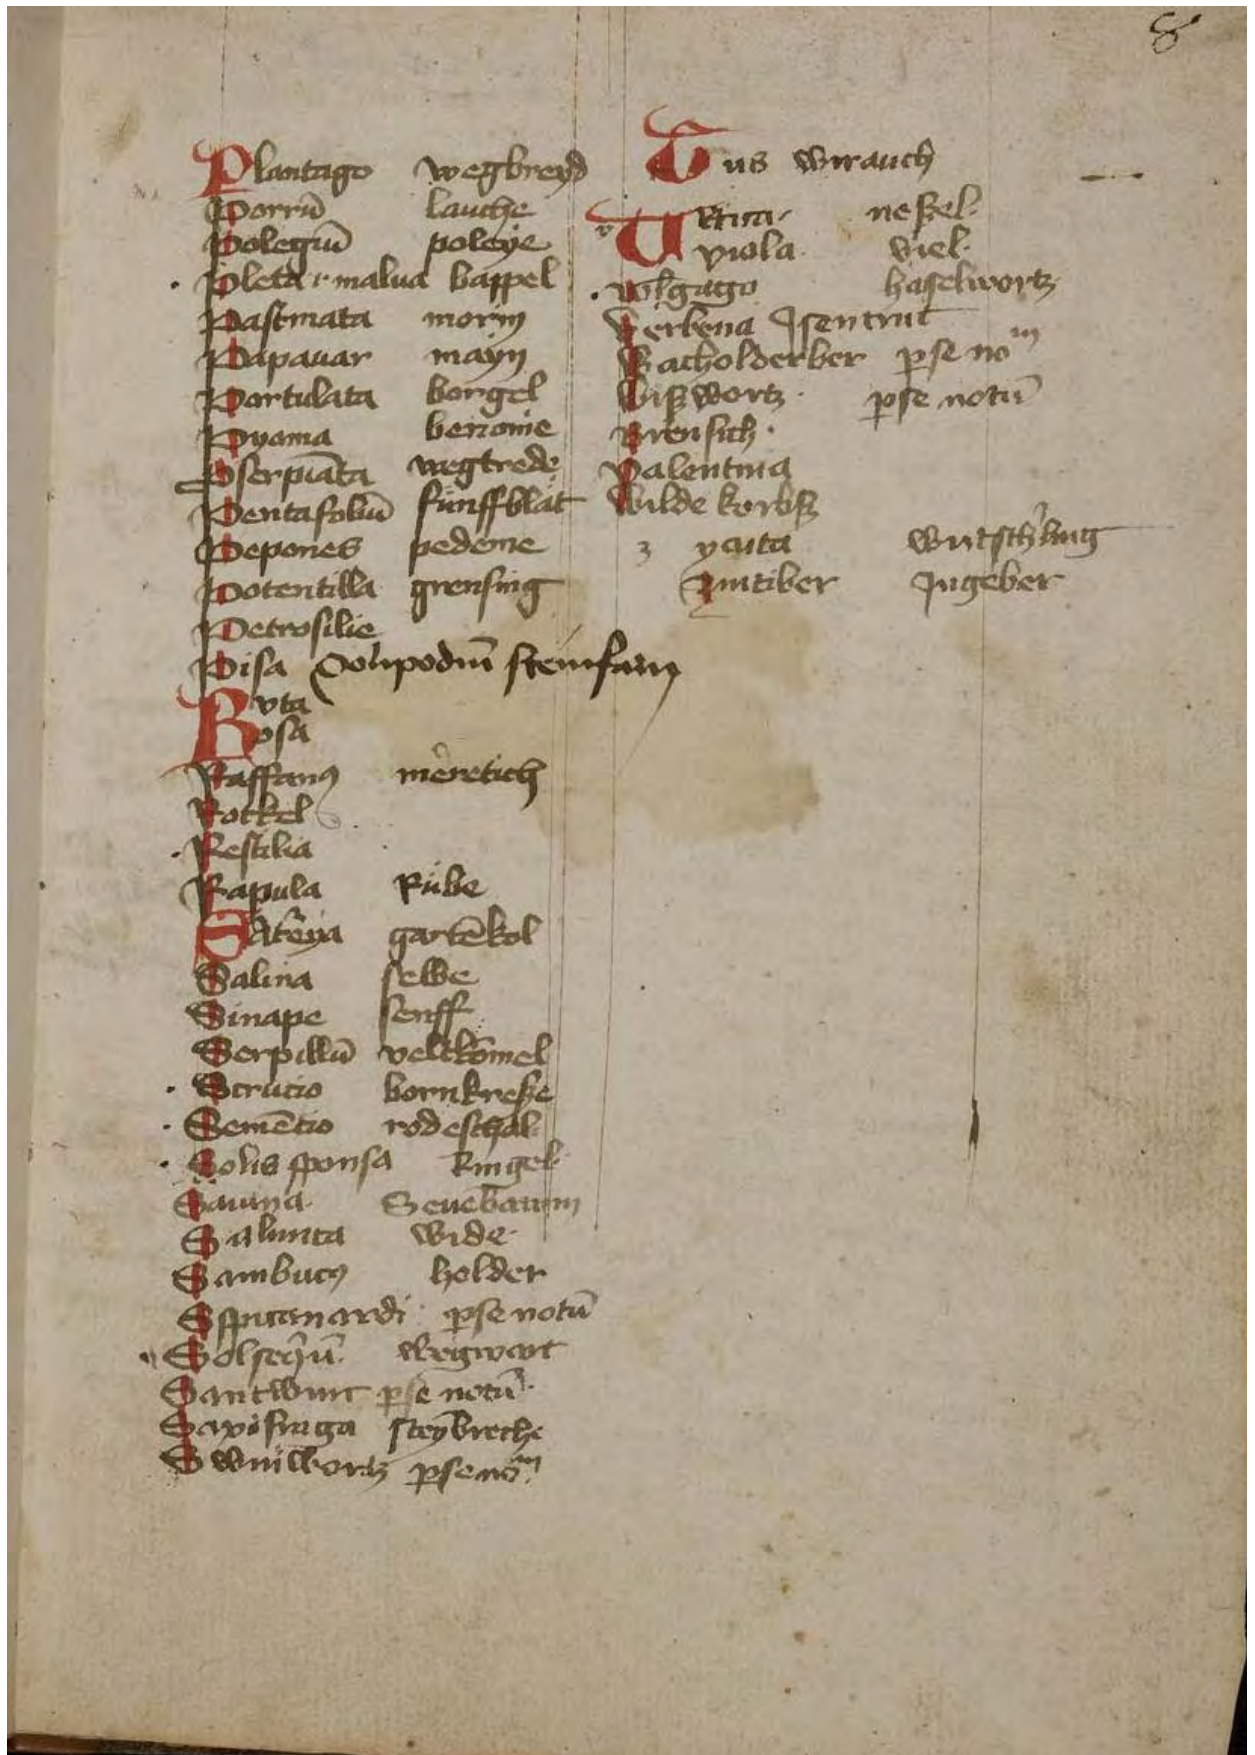 8
Plantago wegbreyd
Porrū lauche
Polegiū poleye
Pleta r malua bappel
Pastinata morin
Papauar mayn
Portulata borgel
Pyonia benonie
Pserpiāta wegtrede
Pentafoliū fünffblat
Pepones pedeme
Potentilla grensing
Petrosilie
Pisa
Rvta
Rosa
Raffanꝰ meretich
Rotkel
Restilia
Rapula Rübe
Satureya gartēkol
Saluia selbe
Sinape senff
Serpillū veltkōmel
Strucio bornkreße
Semētio rodeschal
Solis sponsa ringel
Sauina Seuebaum
Saliunca wide
Sambucꝰ holder
Sspicanardi pse notū
Solseqiū wegwart
pse notū
Saxifraga steybreche
Swinwortz pse noᵐ
Tus wirauch
v Vrtica neßel
viola viel
wlgago haselwortz
Verbena Jsentrut
Wacholderber pse noᵐ
Bißwortz pse notū
Brensich
Valentina
Wilde korbß
ycuta
Zintiber Jngeber